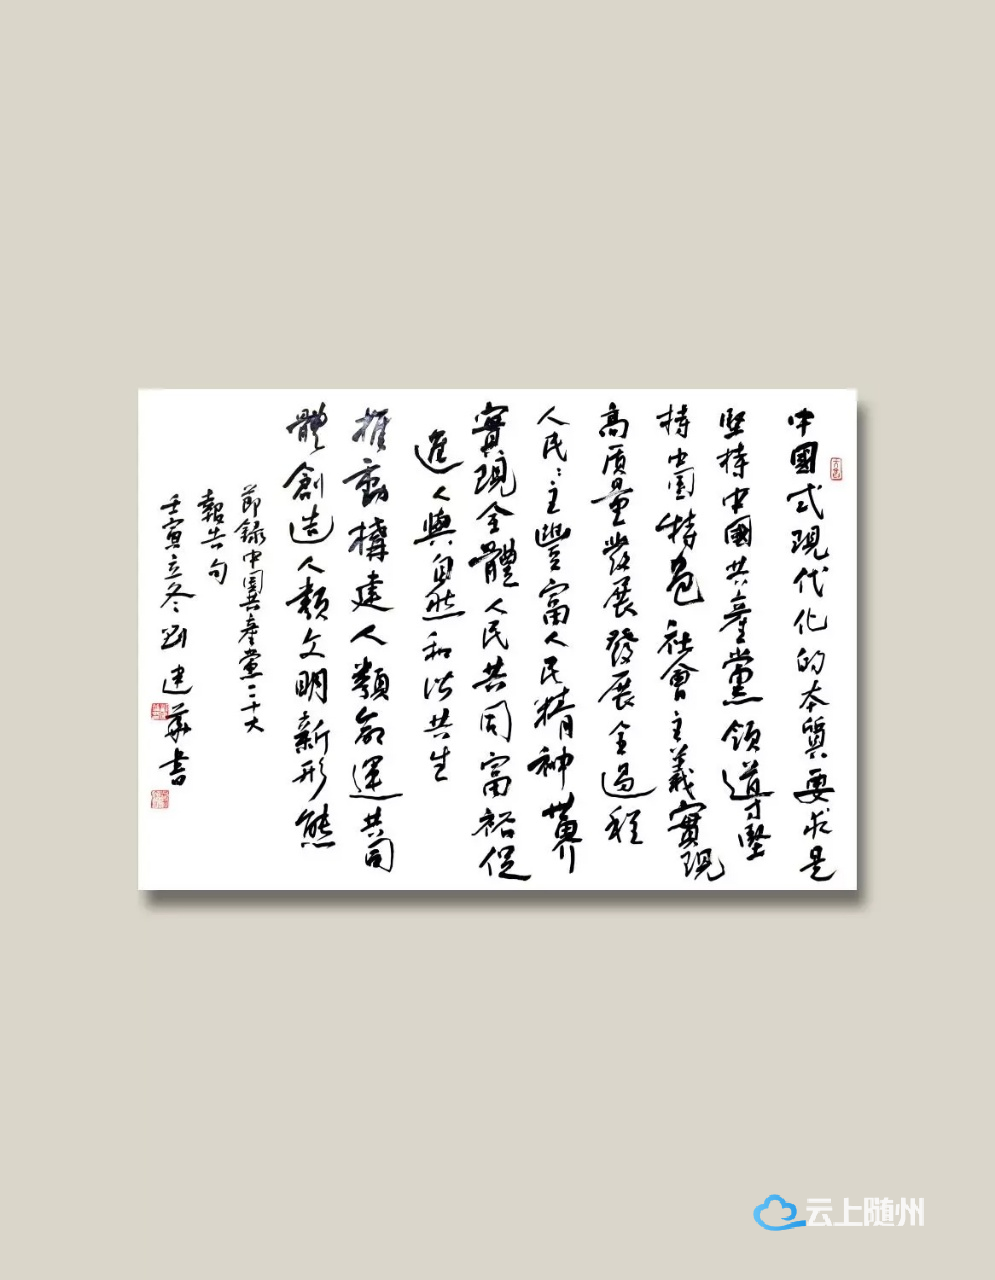 中國式現代化的本質要求是
堅持中國共產黨領導堅
持中国特色社會主義實現
高质量發展發展全過程
人民民主豐富人民精神世界
實現全體人民共同富裕促
進人與自然和谐共生
推動構建人類命運共同
體創造人類文明新形態
節録中国共產黨二十大
報告句
壬寅立冬劉建華書
云上随州